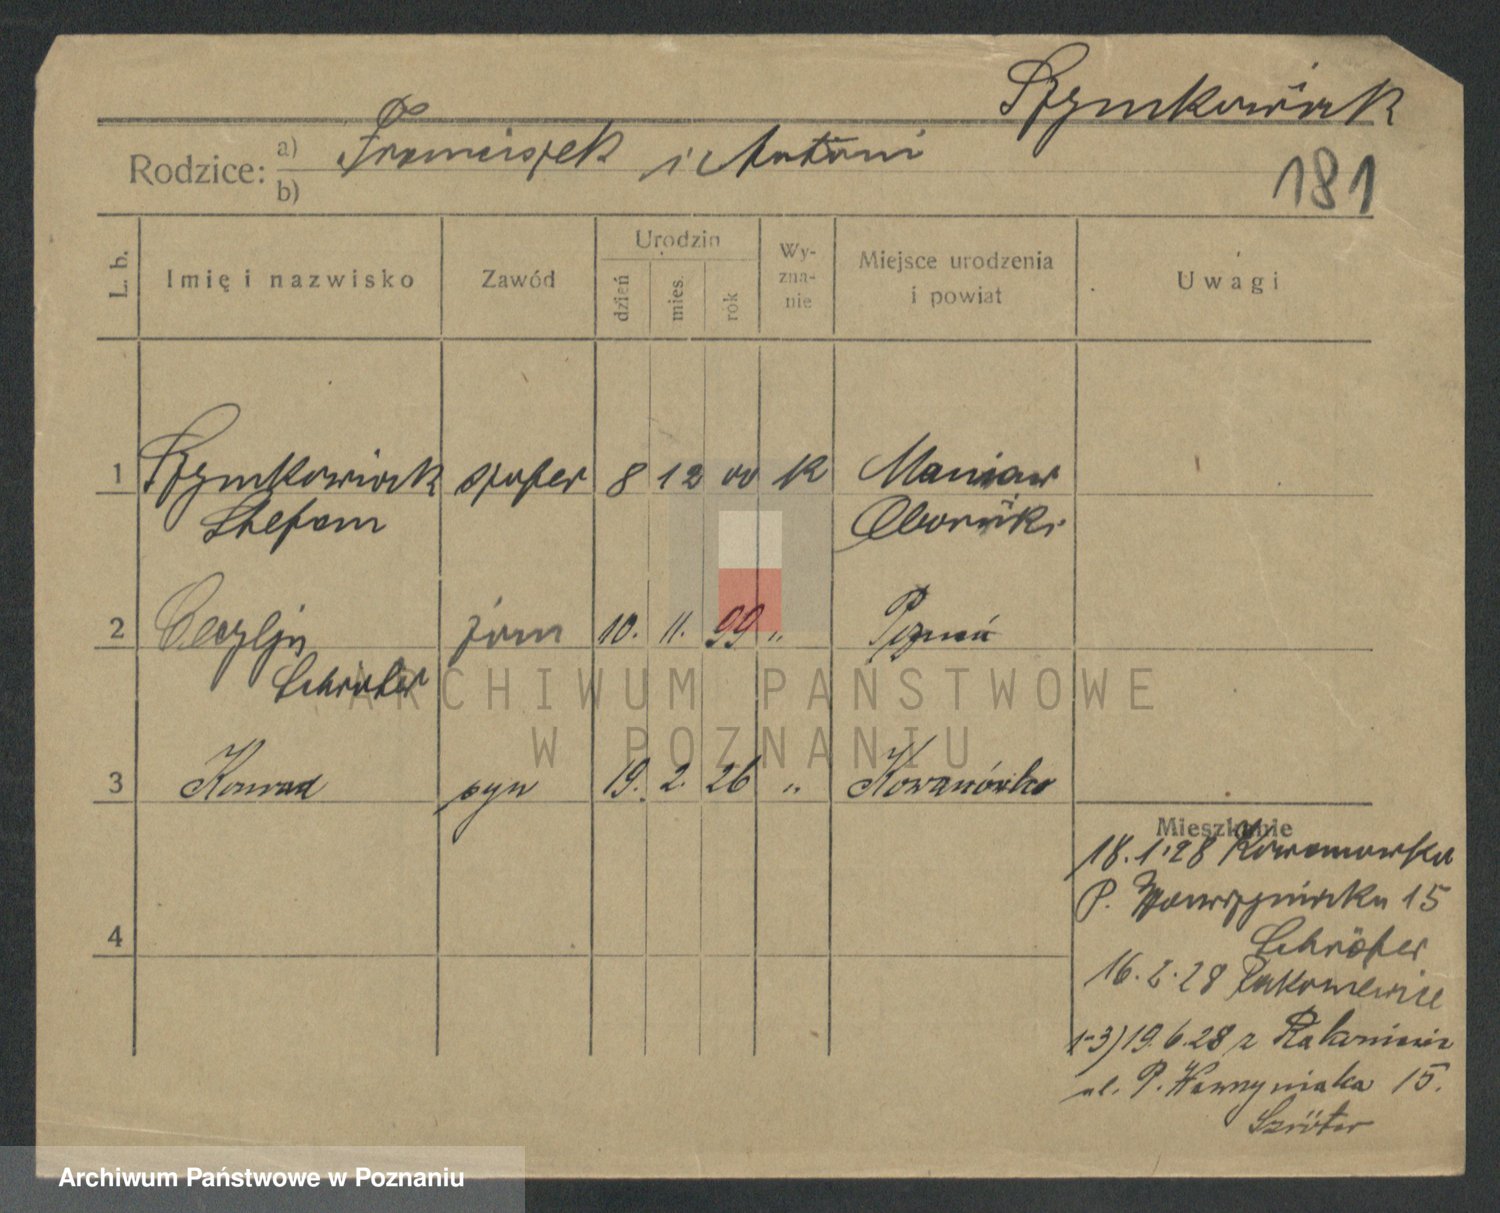 Szymkowiak
Rodzice: a) Franciszek i Antoni
b)
181
L. b.
Imię i nazwisko
Zawód
Urodzin
dzień
mies.
rok
Wy-
zna-
nie
Miejsce urodzenia
i powiat
Uwagi
1 Szymkowiak szofer 8 12 00 K Maniew
Stefan Oborniki
2 Cecylja żona 10. 11. 99 " Poznań
Schröter
3 Konrad syn 19. 2. 26 " Kowanówko
4
Mieszkanie
18.1.28 Kowanowka
P. Wawrzyniaka 15
Schröter
16.2.28 Rakoniewice
1-3) 19.6.28 z Rakoniewic
ul. P. Wawrzyniaka 15.
Szröter
ARCHIWUM PAŃSTWOWE
W POZNANIU
Archiwum Państwowe w Poznaniu